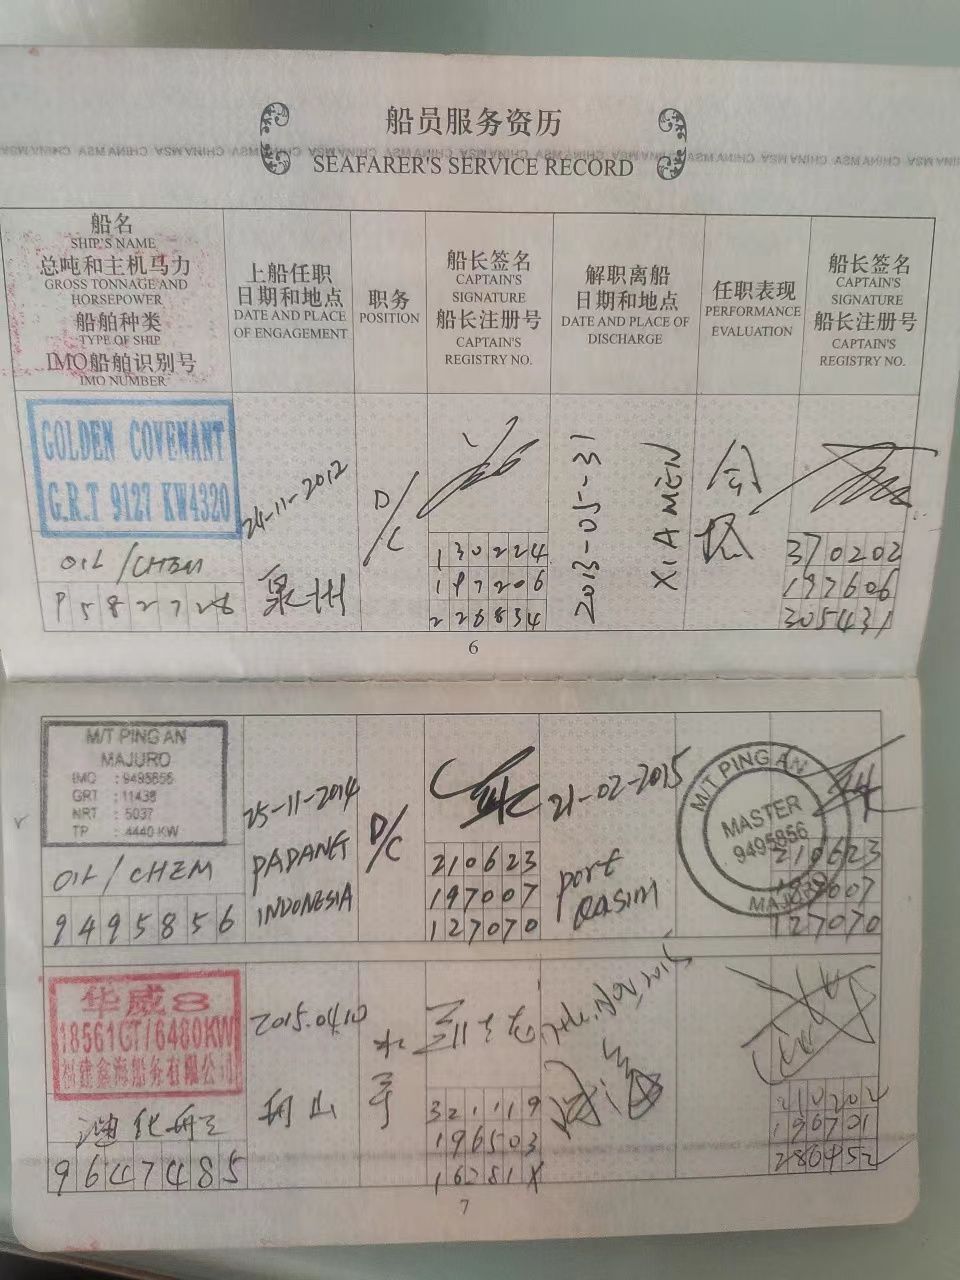 船员服务资历
SEAFARER'S SERVICE RECORD
船名
SHIP'S NAME
总吨和主机马力
GROSS TONNAGE AND
HORSEPOWER
船舶种类
TYPE OF SHIP
IMO船舶识别号
IMO NUMBER
上船任职
日期和地点
DATE AND PLACE
OF ENGAGEMENT
职务
POSITION
船长签名
CAPTAIN'S
SIGNATURE
船长注册号
CAPTAIN'S
REGISTRY NO.
解职离船
日期和地点
DATE AND PLACE OF
DISCHARGE
任职表现
PERFORMANCE
EVALUATION
船长签名
CAPTAIN'S
SIGNATURE
船长注册号
CAPTAIN'S
REGISTRY NO.
GOLDEN COVENANT
G.R.T 9127 KW4320
OIL/CHEM
24-11-2012
泉州
D/C
130224
197206
226834
2013-05-31
XIAMEN
370202
197606
305431
6
M/T PING AN
MAJURO
IMO : 9495856
GRT : 11438
NRT : 5037
TP : 4440 KW
OIL/CHEM
9495856
25-11-2014
PADANG
INDONESIA
D/C
210623
197007
127070
21-02-2015
port
QASIM
M/T PING AN
MASTER
9495856
MAJURO
210623
197007
127070
华威8
18561GT/6480KW
福建鑫海船务有限公司
油化船
9647485
2015.04.10
舟山
水
手
321119
196503
16281X
210202
196701
286952
7